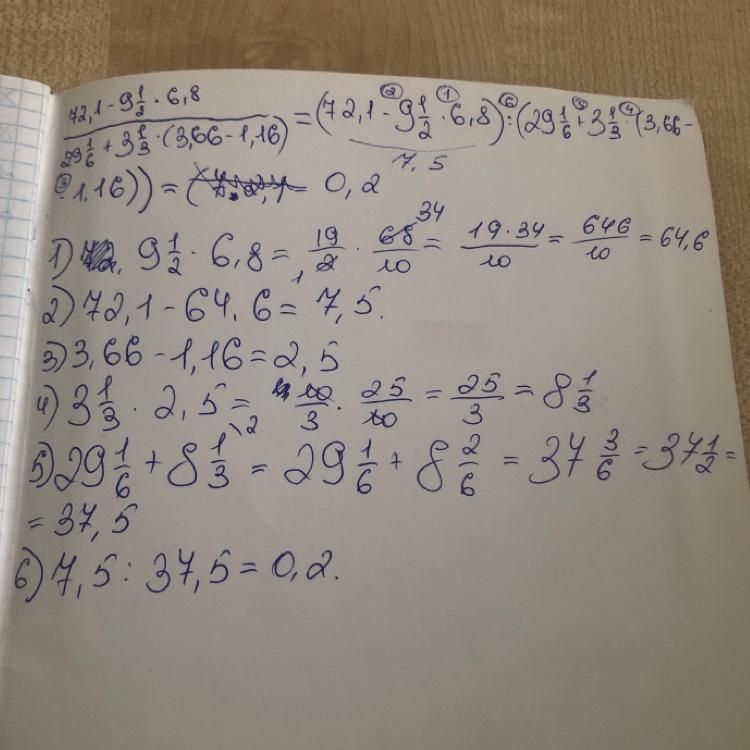 72,1 - 9 1/2 · 6,8 / 29 1/6 + 3 1/3 · (3,66 - 1,16) = (72,1 - 9 1/2 · 6,8) : (29 1/6 + 3 1/3 · (3,66 -
② ① ⑥ ⑤ ④
7,5
③ 1,16)) = = 0,2
1) 9 1/2 · 6,8 = 19/2 · 68/10 = 19·34/10 = 646/10 = 64,6
1 34
2) 72,1 - 64,6 = 7,5.
3) 3,66 - 1,16 = 2,5
4) 3 1/3 · 2,5 = 10/3 · 25/10 = 25/3 = 8 1/3
5) 29 1/6 + 8 1/3 \2 = 29 1/6 + 8 2/6 = 37 3/6 = 37 1/2 =
= 37,5
6) 7,5 : 37,5 = 0,2.